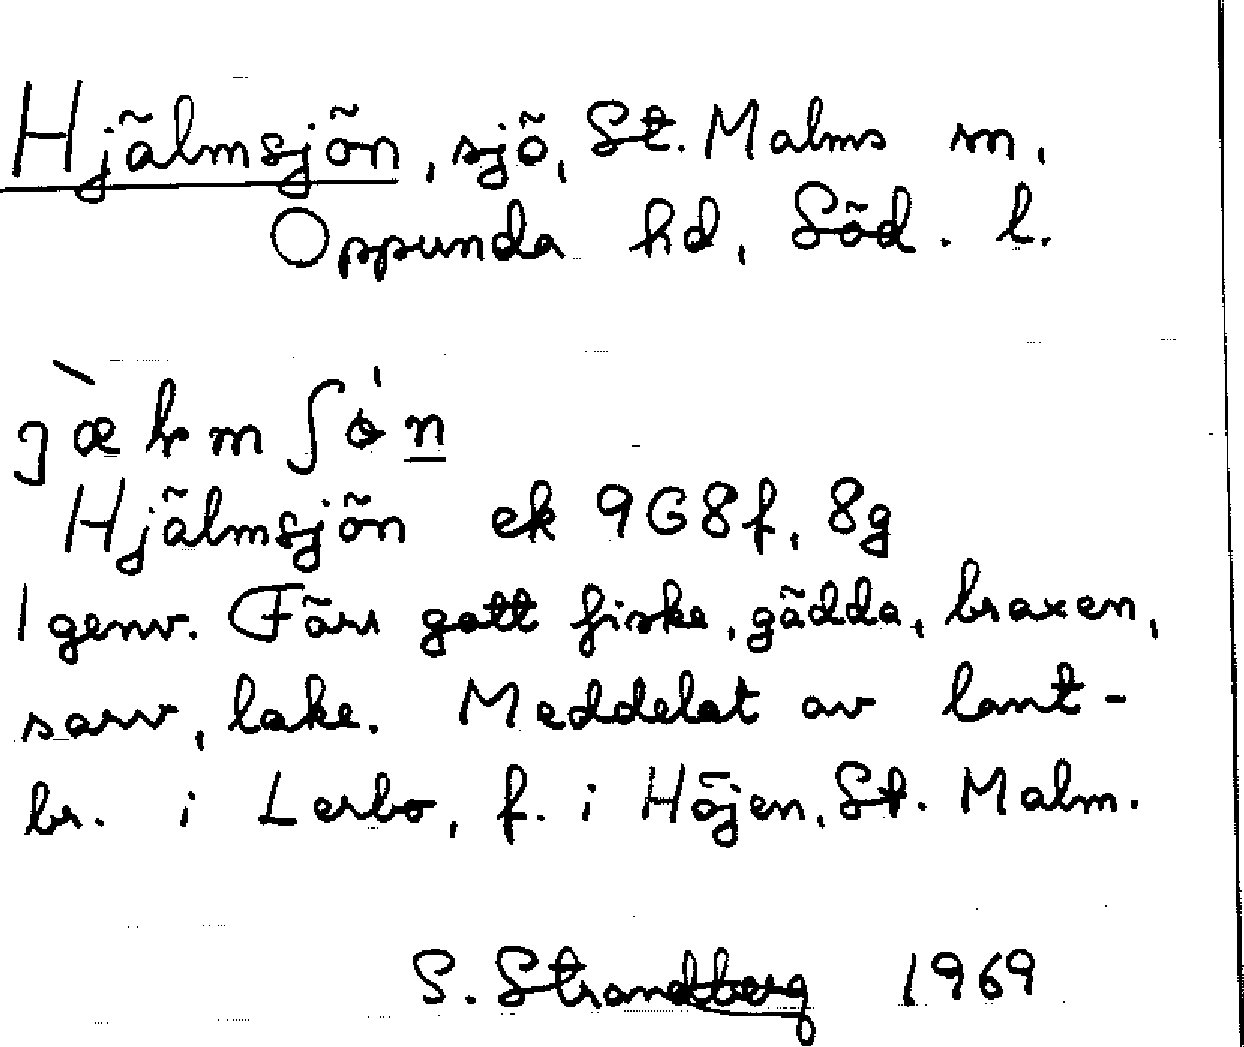 Hjälmsjön, sjö, St. Malms sn,
Oppunda hd, Söd. l.
Hjälmsjön ek 9G8f, 8g
1 genv. Förr gott fiske, gädda, braxen,
sarv, lake. Meddelat av lant-
br. i Lerbo, f. i Höjen, St. Malm.
S. Strandberg 1969